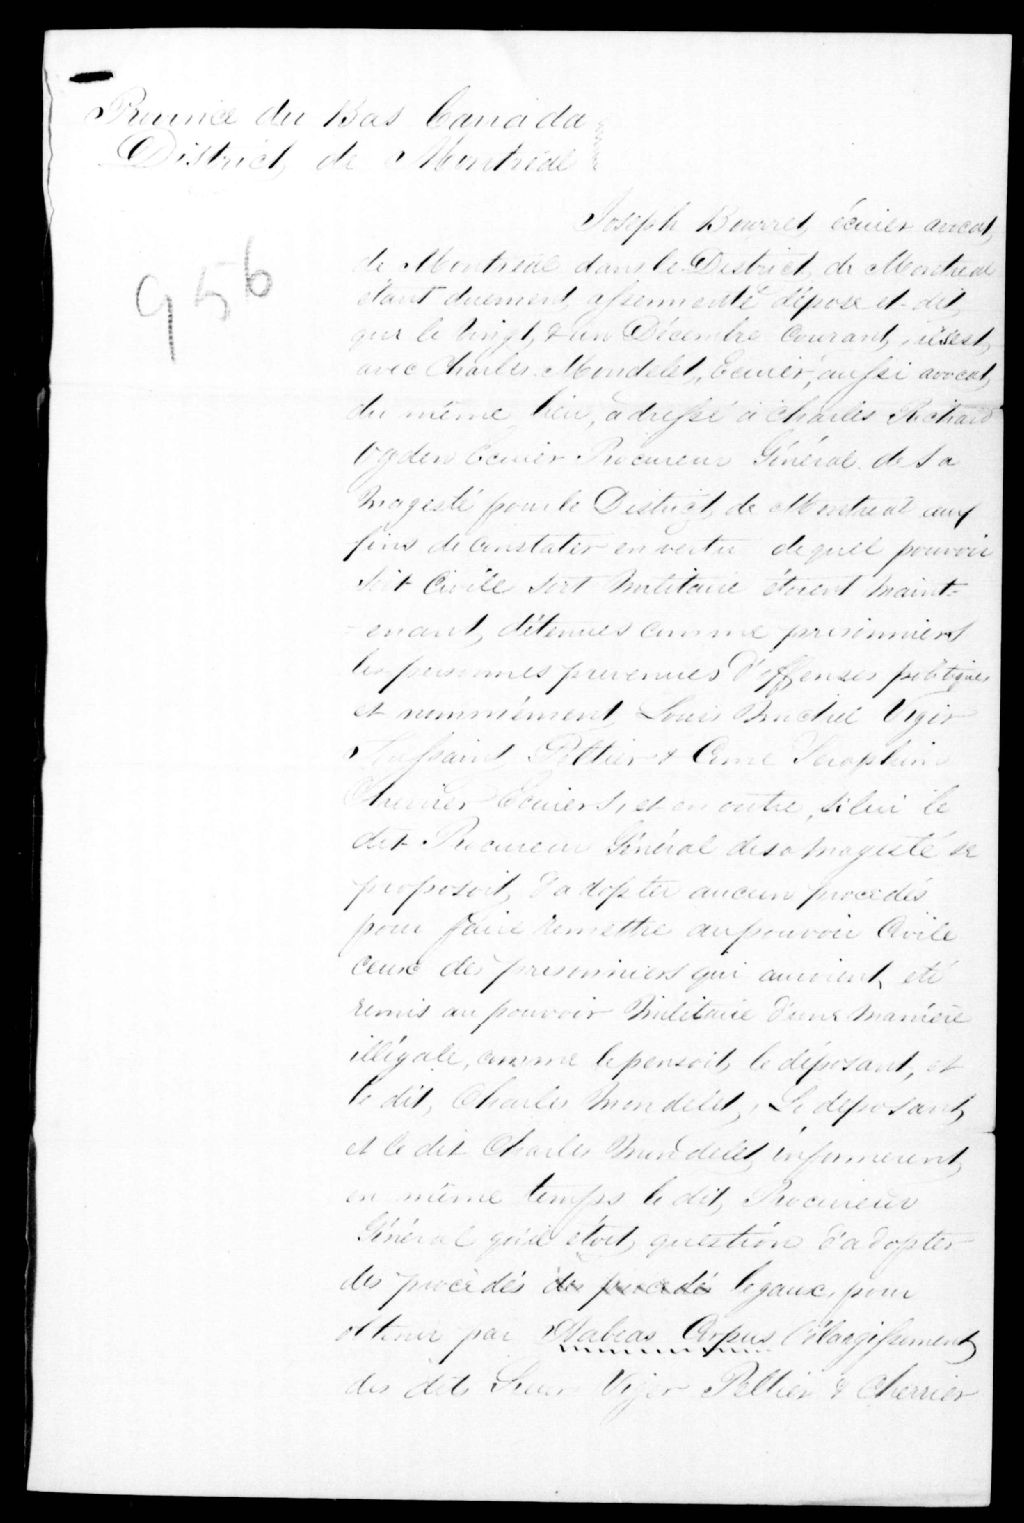 Province du Bas Canada
District de Montréal
956
Joseph Bourret, écuier avocat,
de Montreal dans le District de Montreal
étant duement assermenté dépose et dit
que le vingt & un Décembre Courant, il s'est,
avec Charles Mondelet, Ecuier, aussi avocat,
du même lieu, adressé à Charles Richard
Ogden Ecuier Procureur Général de Sa
Magesté pour le District de Montreal aux
fins de constater en vertu de quel pouvoir
soit Civile soit Militaire étoient maint-
-enant, détenues comme prisonniers
les personnes prevenues d'offenses politiques
et nommément Louis Michel Viger
Toussaint Peltier & Come Seraphin
Cherrier Ecuiers, et en outre, si lui le
dit Procureur Général de sa magesté se
proposoit, d'adopter aucun procedés
pour faire remettre au pouvoir Civile
ceux des prisonniers qui auroient été
remis au pouvoir Militaire d'une manière
illégale, comme le pensoit le déposant, et
le dit, Charles Mondelet, Le déposant,
et le dit Charles Mondelet, informerent,
en même temps le dit, Procureur
Général qu'il étoit, question d'adopter
des procédés des procedés legaux, pour
obtenir par Habeas Corpus l'élargissement
des dits Sieurs Viger Peltier & Cherrier